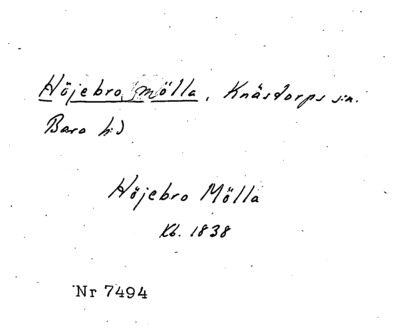 Höjebro mölla, Knästorps sn.
Bara hd
Höjebro Mölla
Kb. 1838
Nr 7494